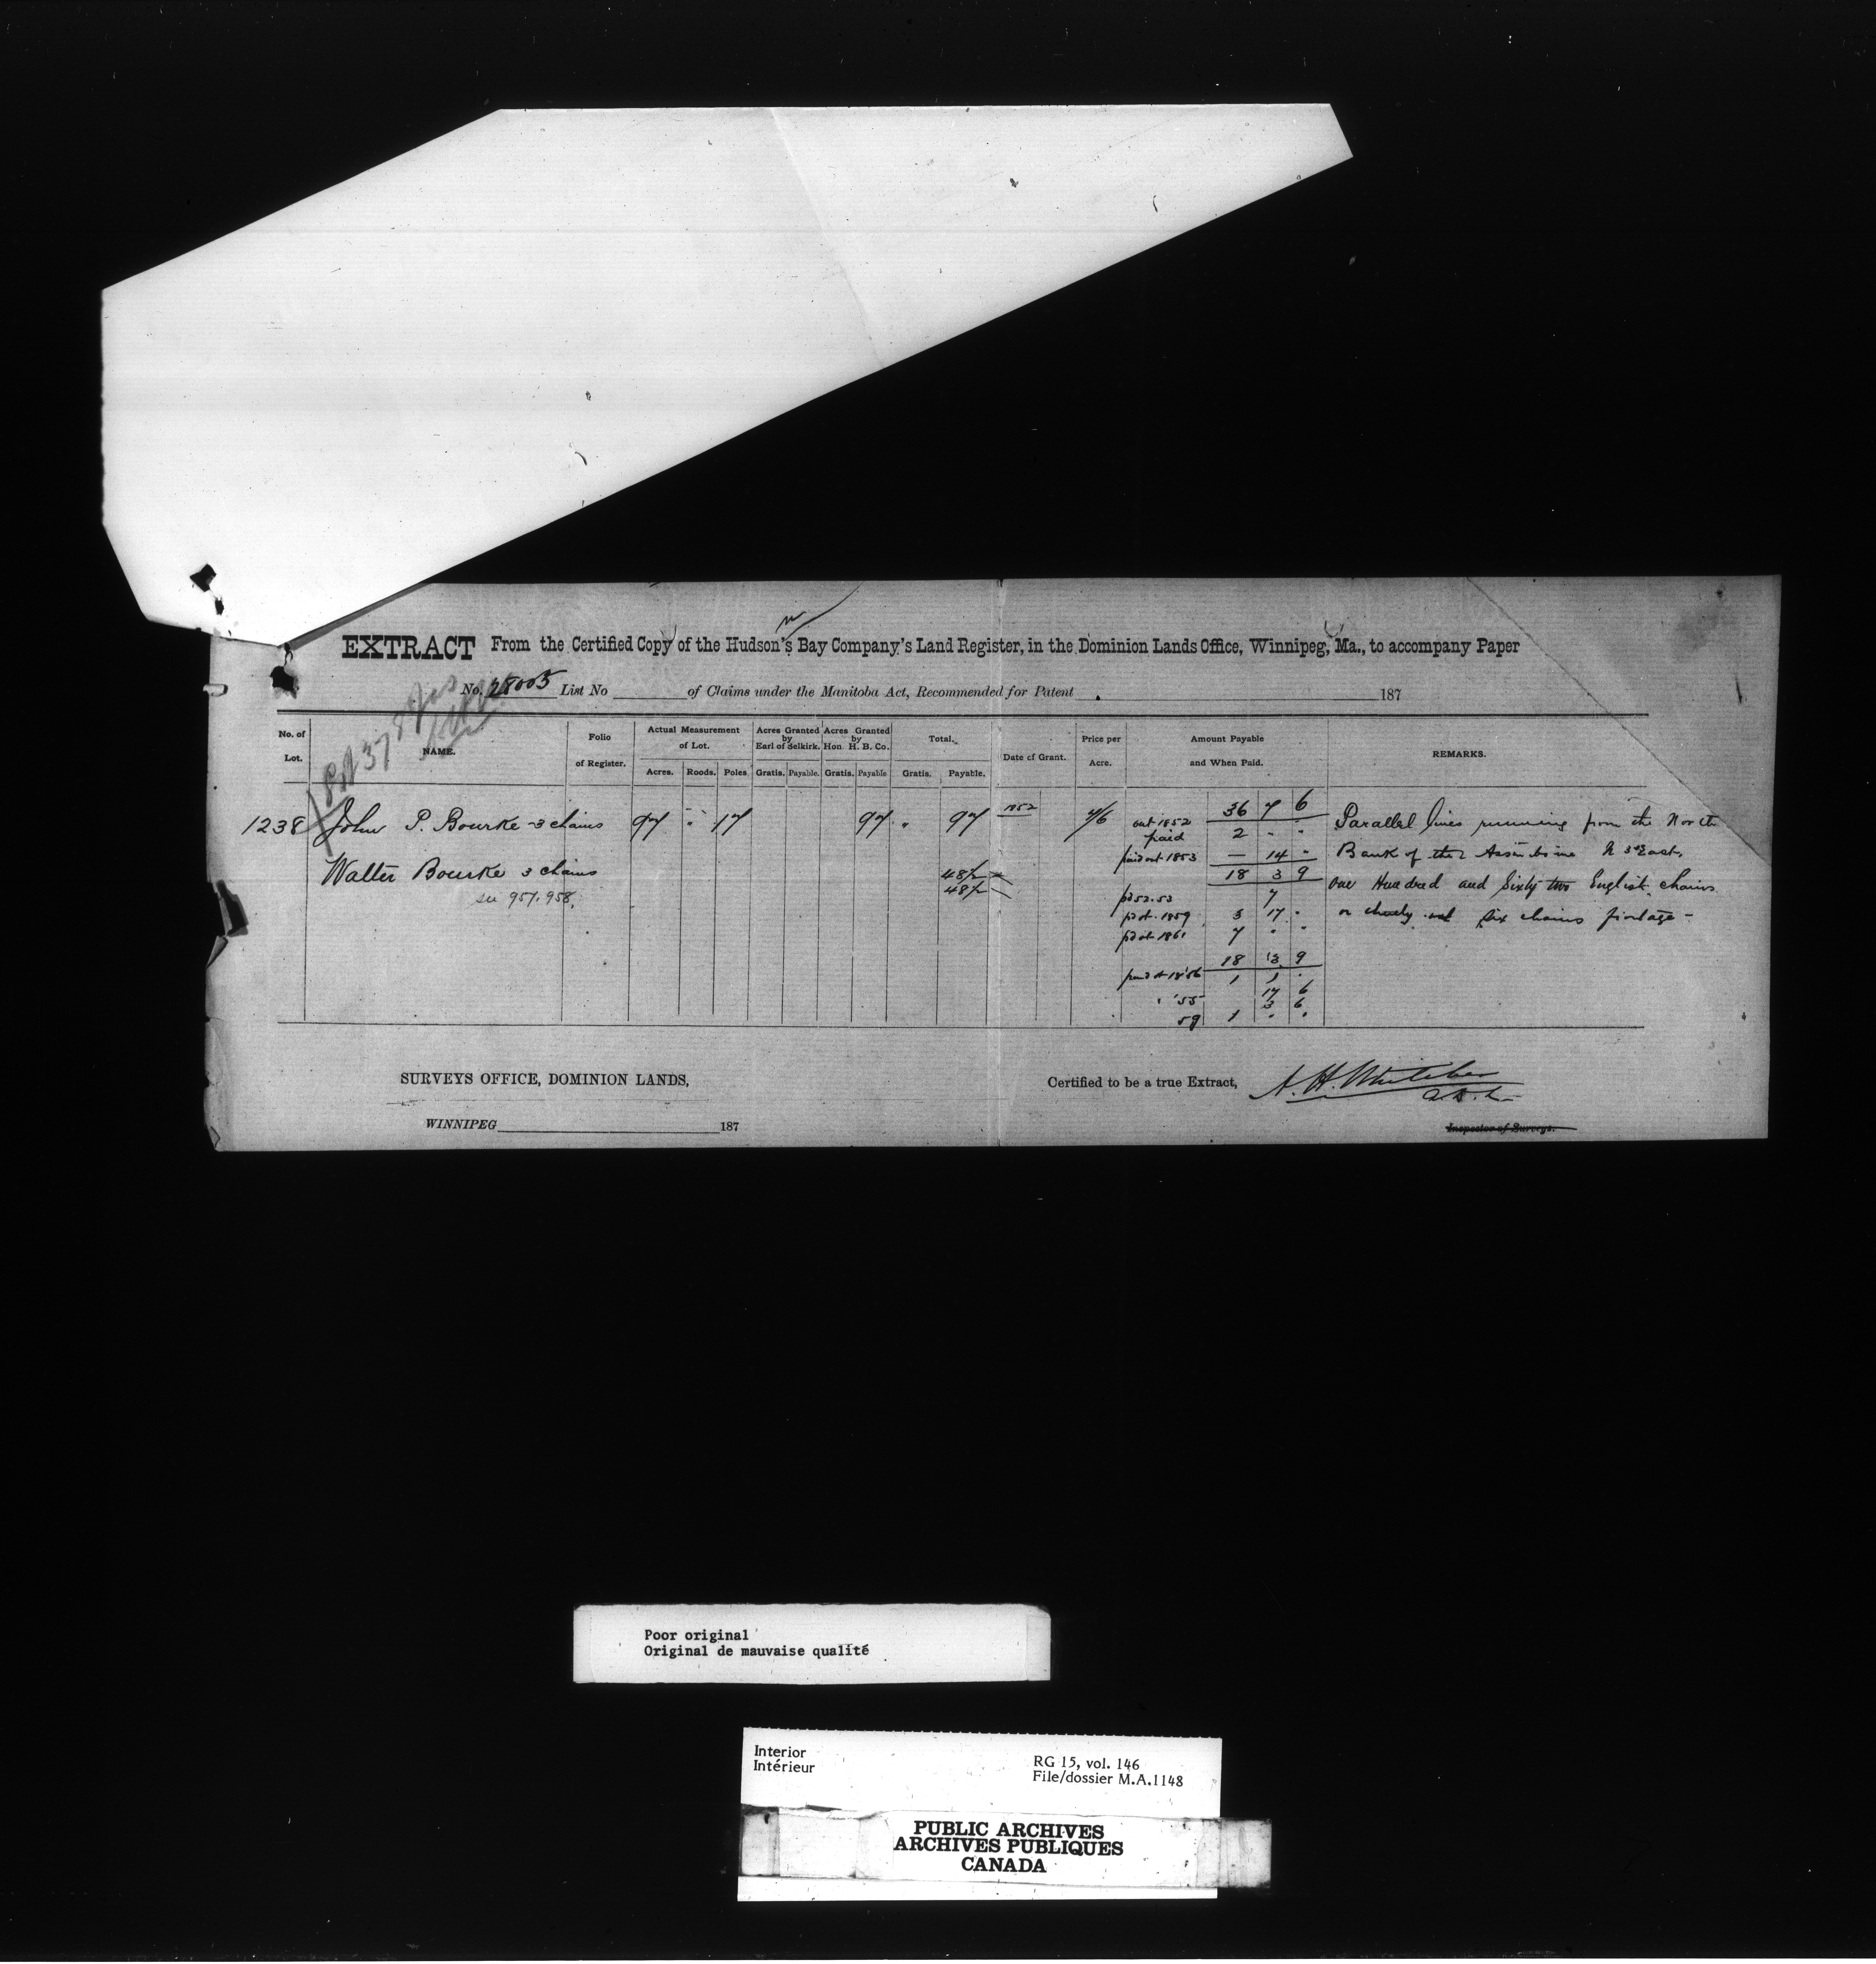 EXTRACT From the Certified Copy of the Hudson's Bay Company's Land Register, in the Dominion Lands Office, Winnipeg, Ma., to accompany Paper
No. 28005 List No of Claims under the Manitoba Act, Recommended for Patent 187
No. of Lot. NAME. Folio of Register. Actual Measurement of Lot. Acres Granted by Earl of Selkirk. Acres Granted by Hon H. B. Co. Total. Date of Grant. Price per Acre. Amount Payable and When Paid. REMARKS.
Acres. Roods. Poles. Gratis. Payable. Gratis. Payable Gratis. Payable.
1238 John P. Bourke 3 chains 97 " 17 97 " 97 1852 7/6 out 1852 36 7 6 Parallel lines running from the North
paid 2 " "
paid out 1853 — 14 " Bank of the Assiniboine N 3° East,
Walter Bourke 3 chains 48½ 18 3 9 One Hundred and Sixty two English chains
see 957.958, 48½
pd 52.53 7
pd ot. 1859 3 17 " or six chains frontage -
pd ot 1861 7 " "
18 3 9
paid ot 1856 1 1 "
" '55 17 6
3 6
59 1 " "
SURVEYS OFFICE, DOMINION LANDS,
Certified to be a true Extract, A. H. Whitcher
WINNIPEG 187
Inspector of Surveys.
Poor original
Original de mauvaise qualité
Interior
Intérieur
RG 15, vol. 146
File/dossier M.A.1148
PUBLIC ARCHIVES
ARCHIVES PUBLIQUES
CANADA